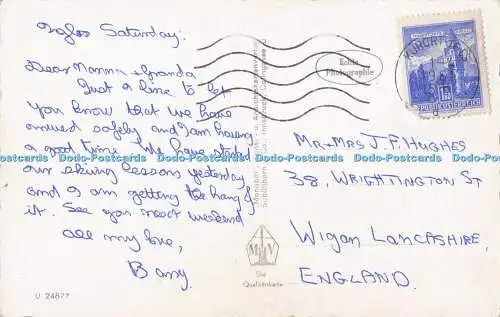 Igls Saturday:
Dear Mamma + Granda
Just a line to let
you know that we have
arrived safely and I am having
a good time. We have started
our skiing lessons yesterday
and I am getting the hang of
it. See you next weekend
all my love,
Barry
U 24877
Echte
Photographie
Die
Qualitätskarte
REPUBLIK ÖSTERREICH
Mr + Mrs J. F. Hughes
38, Wrightington St
Wigan Lancashire,
England.
Dodo-Postcards Dodo-Postcards Dodo-Postcards Dodo-Postcards Dodo-Postcards Dodo-Postcards Dodo-Postcards